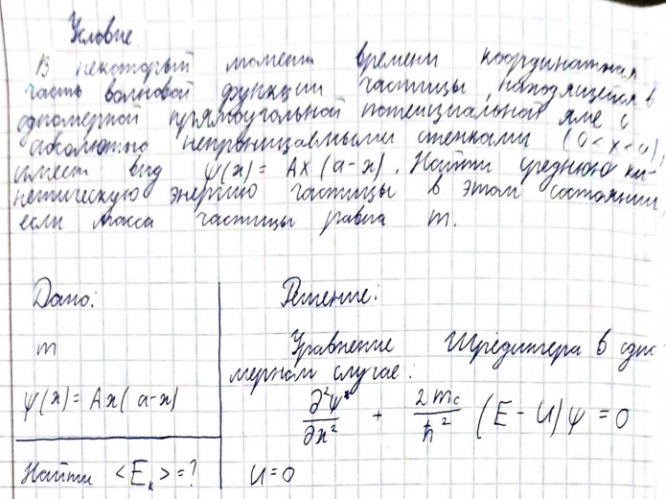 Условие
В некоторый момент времени координатная
часть волновой функции частицы, находящейся в
одномерной прямоугольной потенциальной яме с
абсолютно непроницаемыми стенками (0 < x < a),
имеет вид ψ(x) = Ax(a-x). Найти среднюю ки-
нетическую энергию частицы в этом состоянии,
если масса частицы равна m.
Дано:
m
ψ(x) = Ax(a-x)
Найти <Eₖ> = ?
Решение:
Уравнение Шредингера в одно-
мерном случае:
∂²ψ/∂x² + 2m/ħ² (E - U)ψ = 0
U = 0